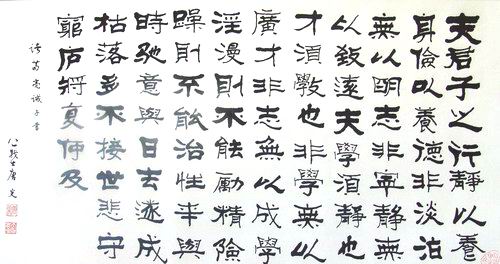 夫君子之行静以養
身儉以養德非淡泊
無以明志非寧静無
以致遠夫學須静也
才須學也非學無以
廣才非志無以成學
淫漫則不能勵精險
躁則不能治性年與
時馳意與日去遂成
枯落多不接世悲守
窮庐將复何及
諸葛亮誡子書